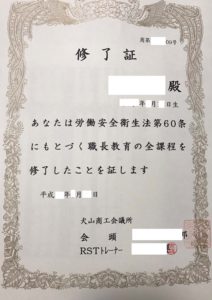 商第 09号
修了証
殿
年 月 日生
あなたは労働安全衛生法第60条
にもとづく職長教育の全課程を
修了したことを証します
平成 年 月 日
犬山商工会議所
会頭 郎
RSTトレーナー